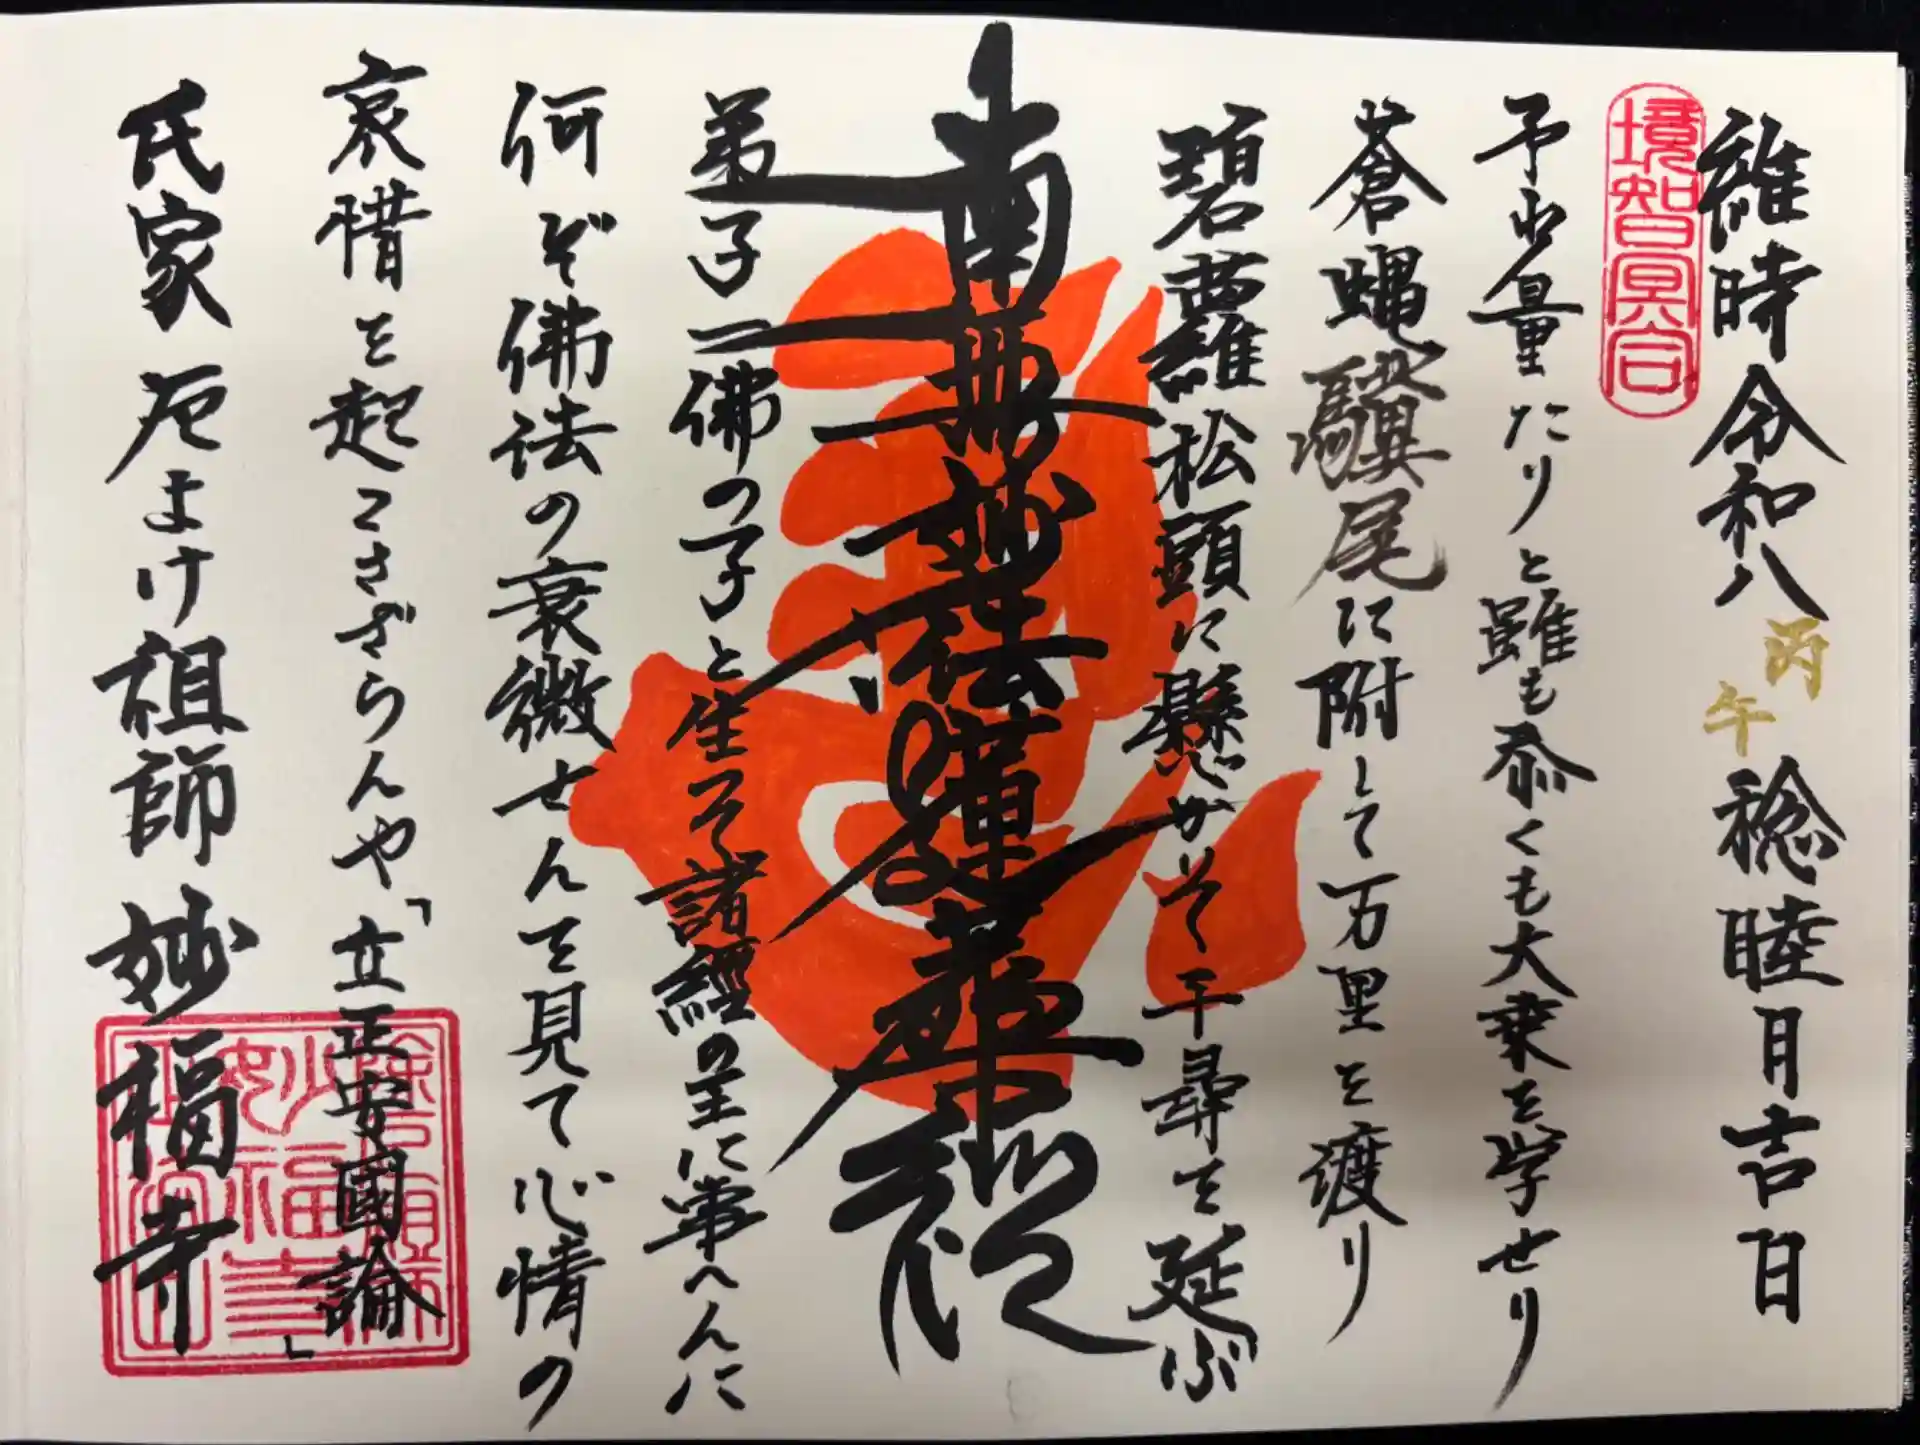 境智冥合
維時令和八丙午稔睦月吉日
予少量たりと雖も忝くも大乗を学せり
蒼蠅驥尾に附して万里を渡り
碧蘿松頭に懸かりて千尋を延ぶ
南無妙法蓮華経
弟子一佛の子と生れて諸經の王に事へんに
何ぞ佛法の衰微せんを見て心情の
哀惜を起こさざらんや「立正安國論」
氏家厄よけ祖師妙福寺
妙福寺